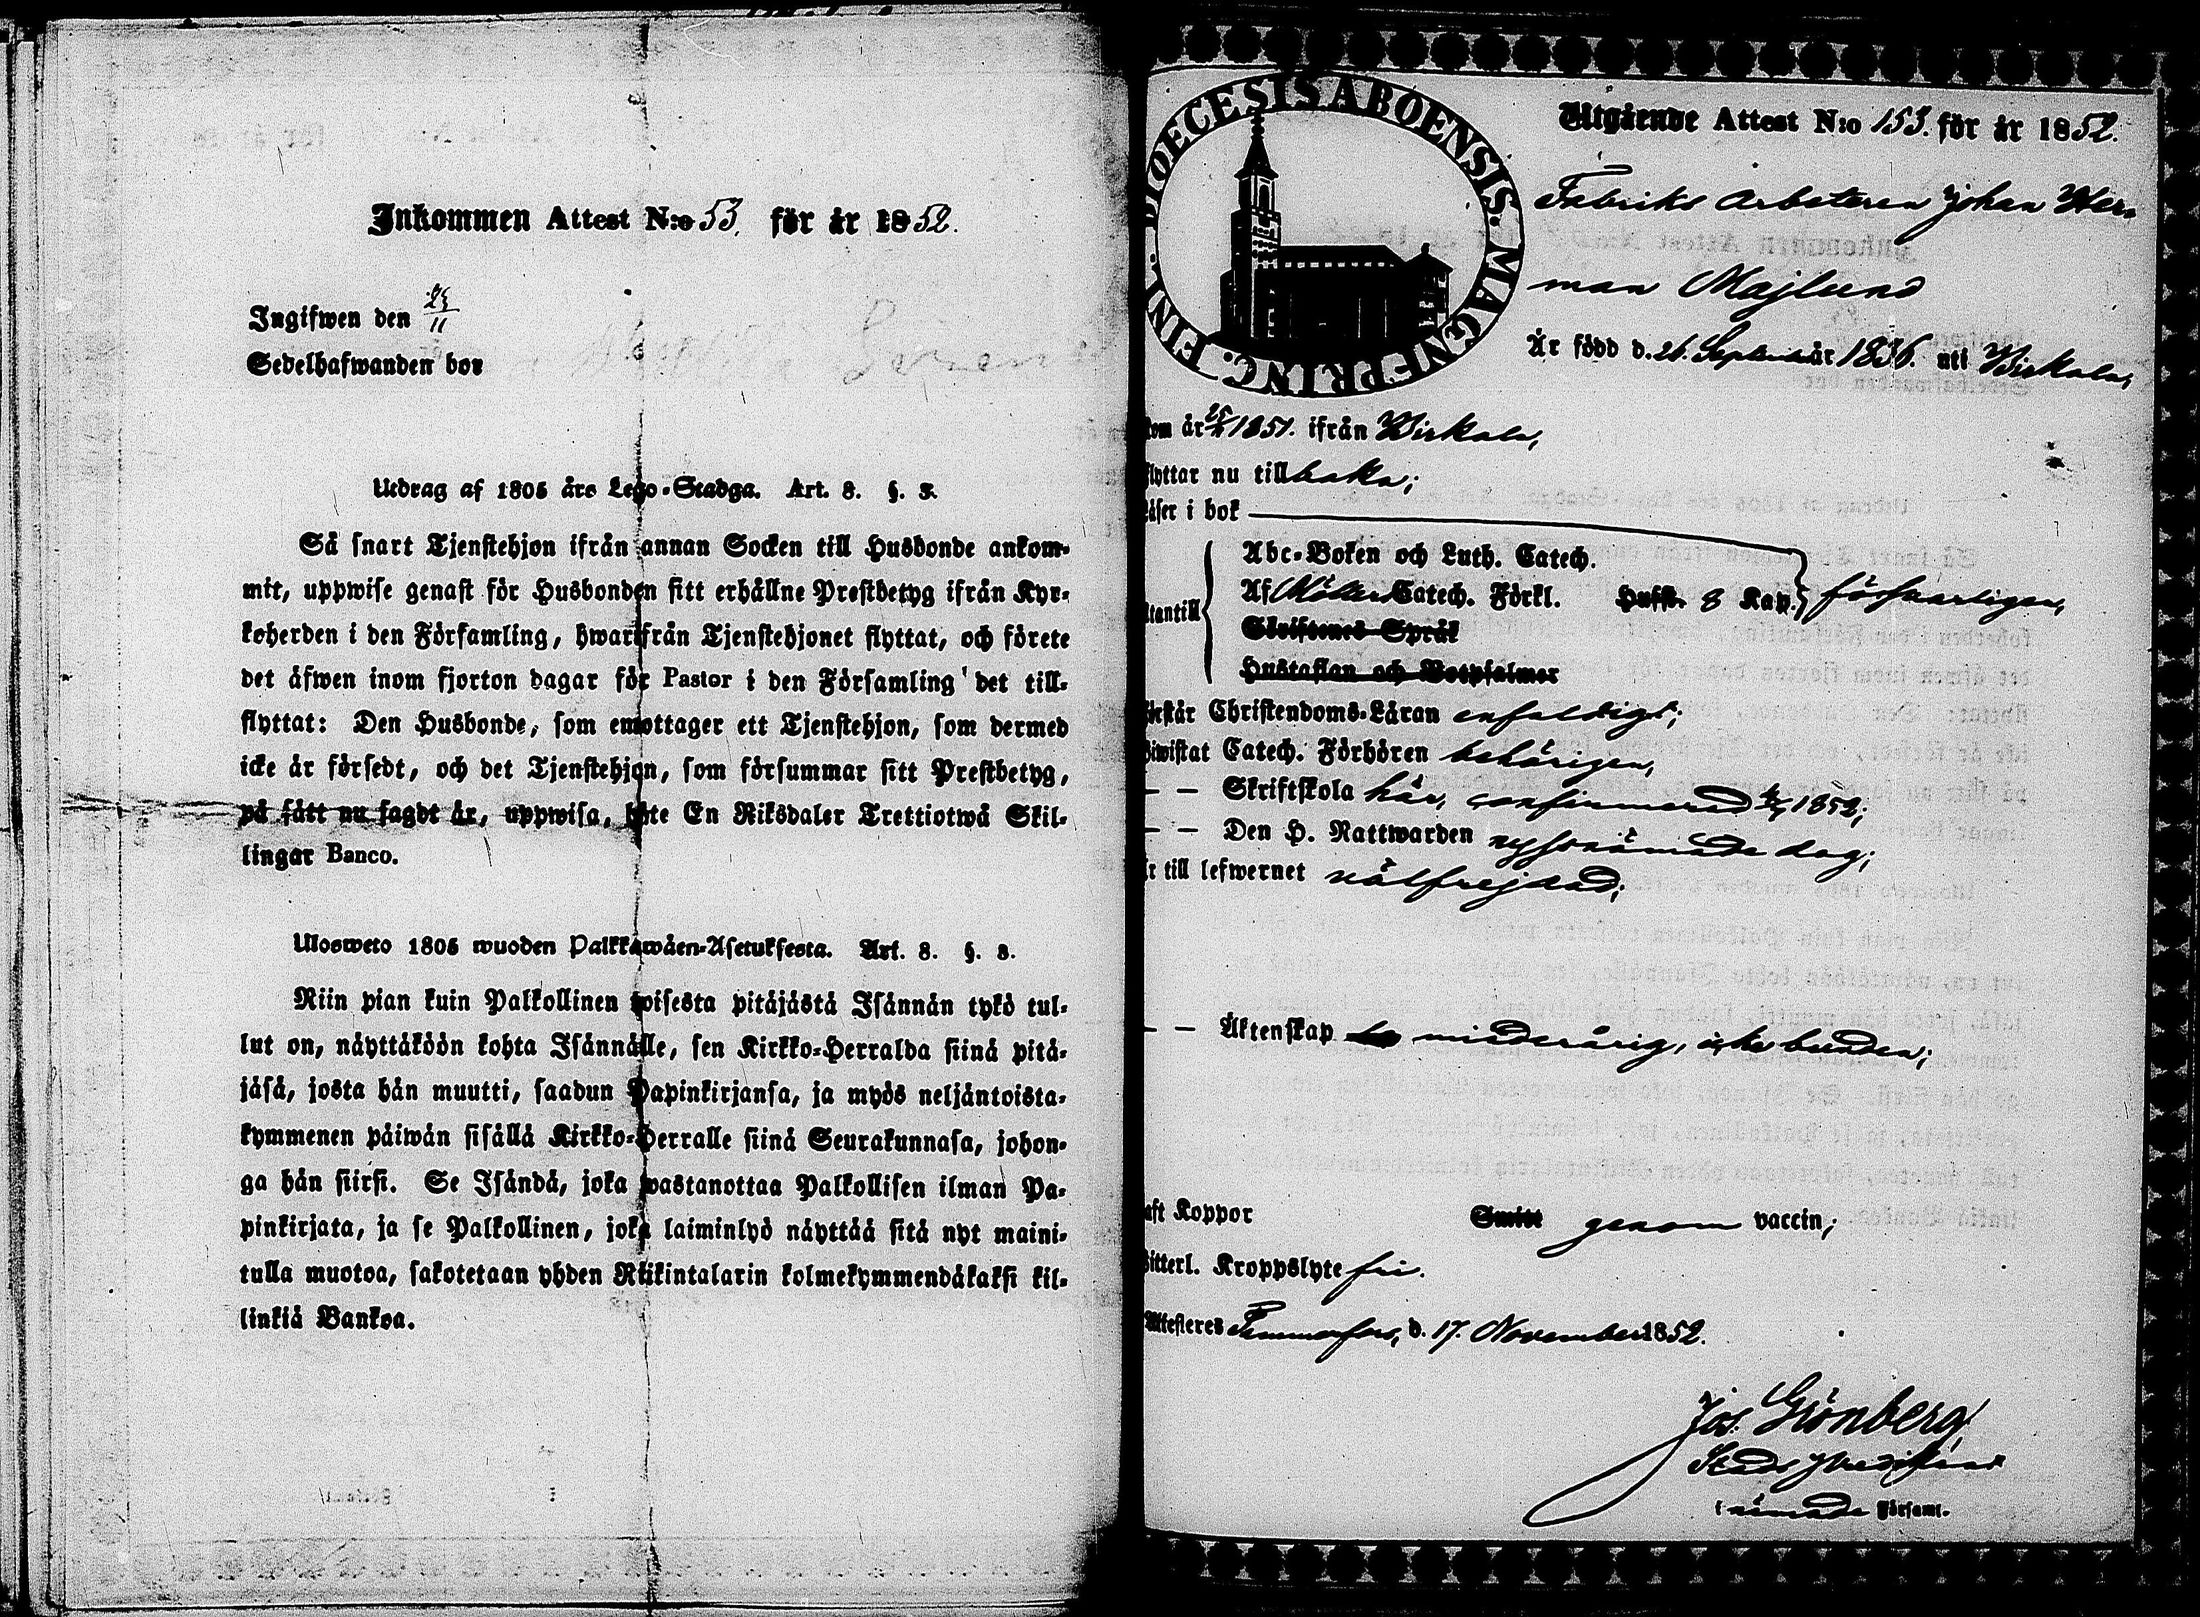 Inkommen Attest N:o 53. för år 1852.
Ingifwen den 25/11
Sedelhafwanden bor
Utdrag af 1805 års Lego-Stadga. Art. 8. §. 3.
Så snart Tjenstehjon ifrån annan Socken till Husbonde ankom-
mit, uppwise genast för Husbonden sitt erhållne Prestbetyg ifrån Kyr-
koherden i den Församling, hwarifrån Tjenstehjonet flyttat, och förete
det äfwen inom fjorton dagar för Pastor i den Församling det till-
flyttat: Den Husbonde, som emottager ett Tjenstehjon, som dermed
icke är försedt, och det Tjenstehjon, som försummar sitt Prestbetyg,
på sätt nu sagdt är, uppwisa, böte En Riksdaler Trettiotwå Skil-
lingar Banco.
Ulosweto 1805 wuoden Palkkawäen-Asetuksesta. Art. 8. §. 3.
Niin pian kuin Palkollinen toisesta pitäjästä Isännän tykö tul-
lut on, näyttäköön kohta Isännälle, sen Kirkko-Herralda siinä pitä-
jäsä, josta hän muutti, saadun Papinkirjansa, ja myös neljäntoista-
kymmenen päiwän sisällä Kirkko-Herralle siinä Seurakunnasa, johon-
ga hän siirsi. Se Isändä, joka wastanottaa Palkollisen ilman Pa-
pinkirjata, ja se Palkollinen, joka laiminlyö näyttää sitä nyt maini-
tulla muotoa, sakotetaan yhden Riikintalarin kolmekymmendäkaksi kil-
linkiä Bankoa.
DIOECESIS ABOENSIS. MAGNE PRINC. FINL.
Utgående Attest N:o 153. för år 1852.
Fabriks Arbetaren Johan Her-
man Majlund
Är född d. 26. September år 1836. uti Birkala,
kom år 25/11 1851. ifrån Birkala,
flyttar nu tillbaka;
läser i bok
Abc-Boken och Luth. Catech.
utantill Af Möllers Catech. Förkl. Hufst. 8 Kap. försvarligen,
Skriftenes Språk
Hustaflan och Botpsalmer
förstår Christendoms-Läran enfaldigt;
biwistat Catech. Förhören behörigen,
— — Skriftskola här, confirmerad 1852;
— — Den H. Nattwarden nyssnämnde dag;
är till lefwernet välfrejdad;
— — Äktenskap minderårig, icke bunden;
haft Koppor Smitt genom vaccin;
Witterl. Kroppslyte fri.
Attesteras Tammerfors, d. 17. November 1852.
Jos. Grönberg
Stads Predikant
i nämnde Församl.